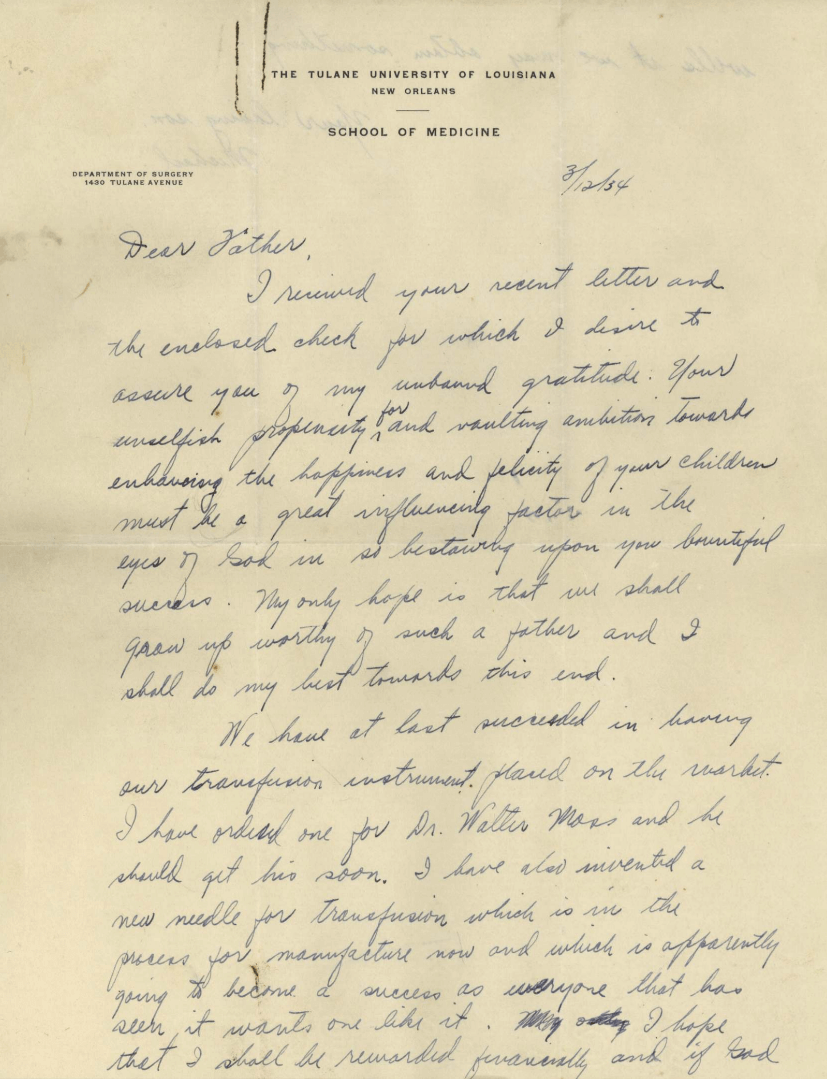 THE TULANE UNIVERSITY OF LOUISIANA
NEW ORLEANS
SCHOOL OF MEDICINE
DEPARTMENT OF SURGERY
1430 TULANE AVENUE
3/12/34
Dear Father,
I received your recent letter and
the enclosed check for which I desire to
assure you of my unbound gratitude. Your
unselfish propensity for and vaulting ambition towards
enhancing the happiness and felicity of your children
must be a great influencing factor in the
eyes of God in so bestowing upon you bountiful
success. My only hope is that we shall
grow up worthy of such a father and I
shall do my best towards this end.
We have at last succeeded in having
our transfusion instrument placed on the market.
I have ordered one for Dr. Walter Moss and he
should get his soon. I have also invented a
new needle for transfusion which is in the
process for manufacture now and which is apparently
going to become a success as everyone that has
seen it wants one like it. I hope
that I shall be rewarded financially and if God